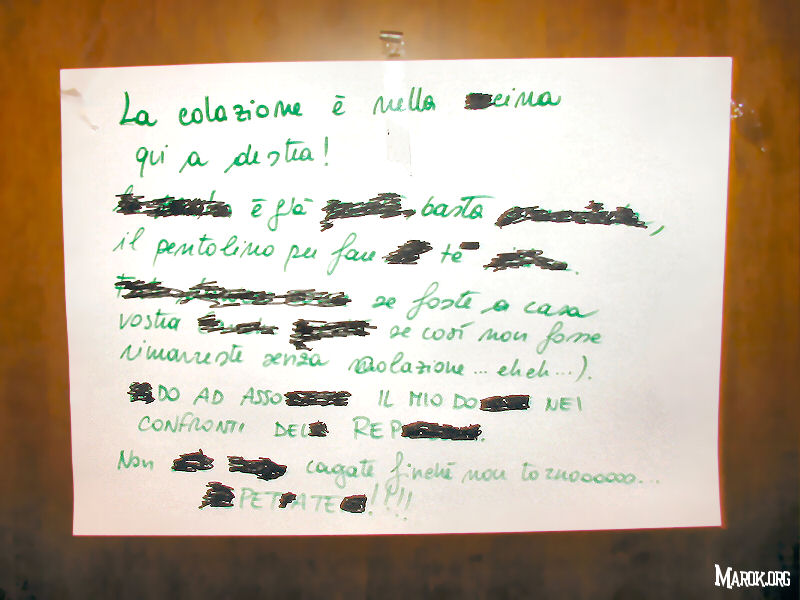 La colazione è nella cina
qui a destra!
è già basta ,
il pentolino per fare tè .
se foste a casa
vostra se così non fosse
rimarreste senza colazione... eheh...).
DO AD ASSO IL MIO DO NEI
CONFRONTI DEL REP.
Non cagate finché non tornoooooo...
PET ATE !!!!
MAROK.ORG